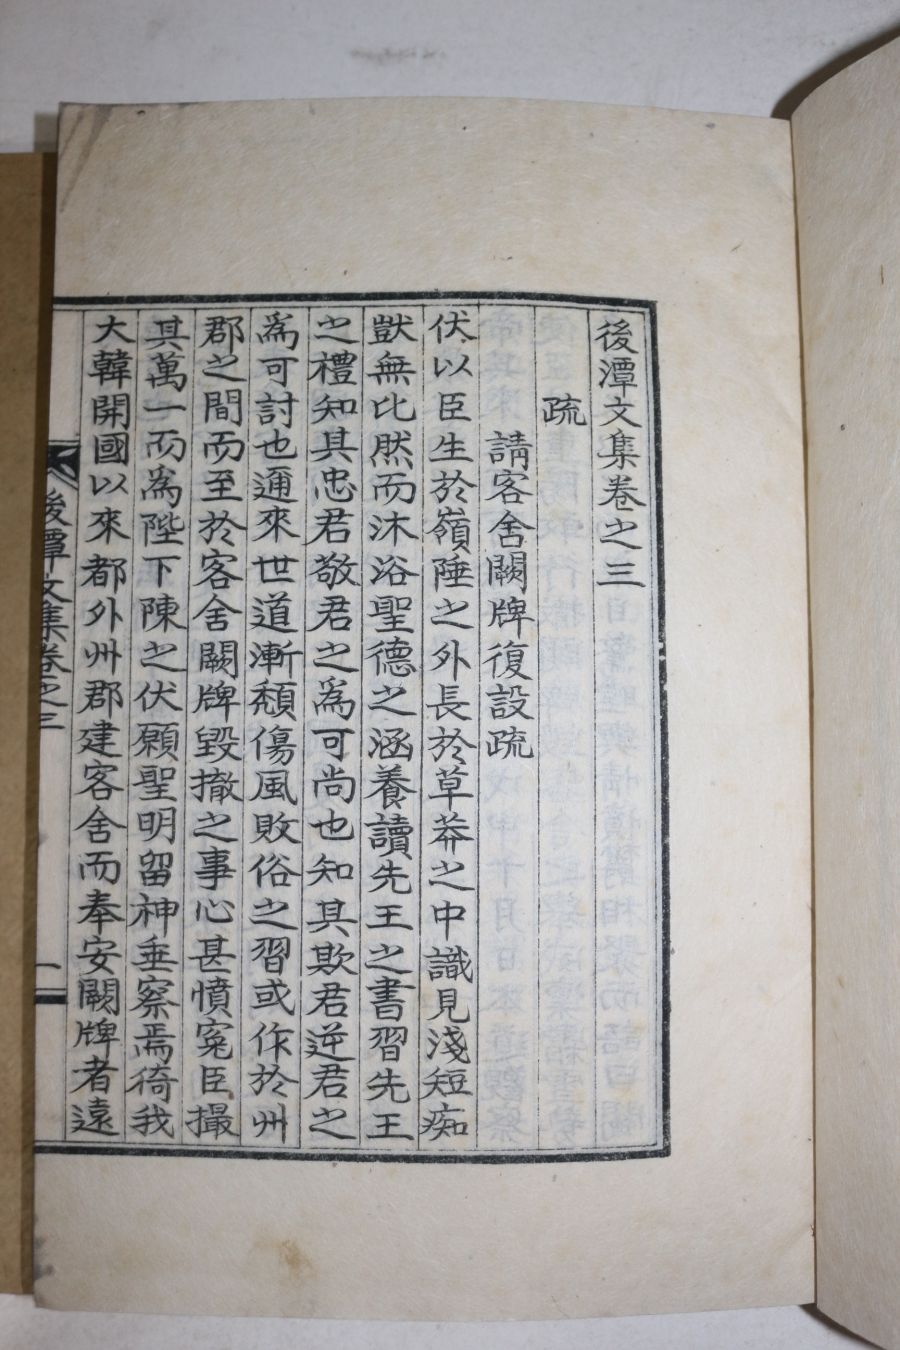 後潭文集卷之三
疏
請客舍闕牌復設疏
伏以臣生於嶺陲之外長於草莽之中識見淺短痴
獃無比然而沐浴聖德之涵養讀先王之書習先王
之禮知其忠君敬君之爲可尚也知其欺君逆君之
爲可討也邇來世道漸頹傷風敗俗之習或作於州
郡之間而至於客舍闕牌毀撤之事心甚憤寃臣撮
其萬一而爲陛下陳之伏願聖明留神垂察焉猗我
大韓開國以來都外州郡建客舍而奉安闕牌者遠
後潭文集卷之三
一